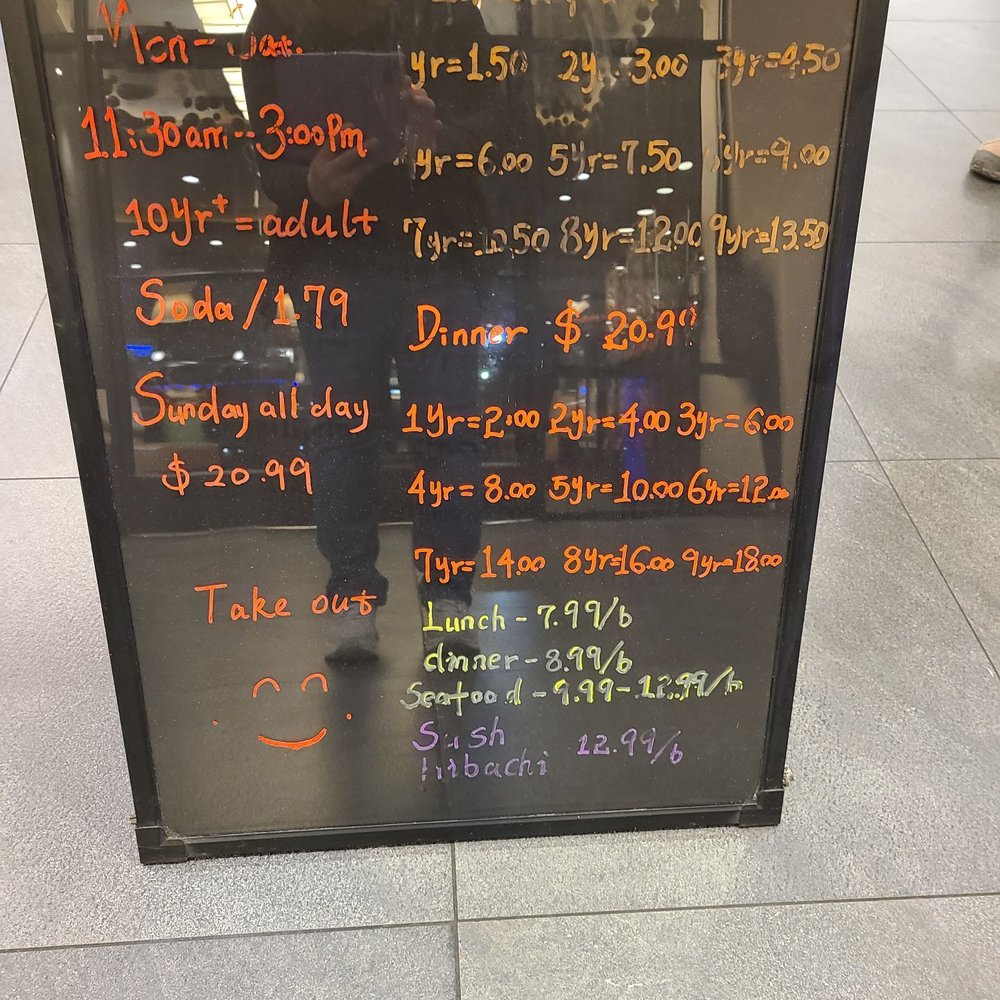 11:30am--3:00Pm
10yr+ = adult
Soda / 1.79
Sunday all day
$ 20.99
Take out
yr=1.50 2y 3.00 3yr=4.50
yr=6.00 5yr=7.50 yr=9.00
7yr= 8yr=12.00 9yr=13.50
Dinner $ 20.9
1yr=2.00 2yr=4.00 3yr=6.00
4yr= 8.00 5yr=10.00 6yr=12.00
7yr= 14.00 8yr=16.00 9yr=18.00
Lunch - 7.99/b
dinner - 8.99/b
Seafood - 9.99-12.99/b
12.99/b